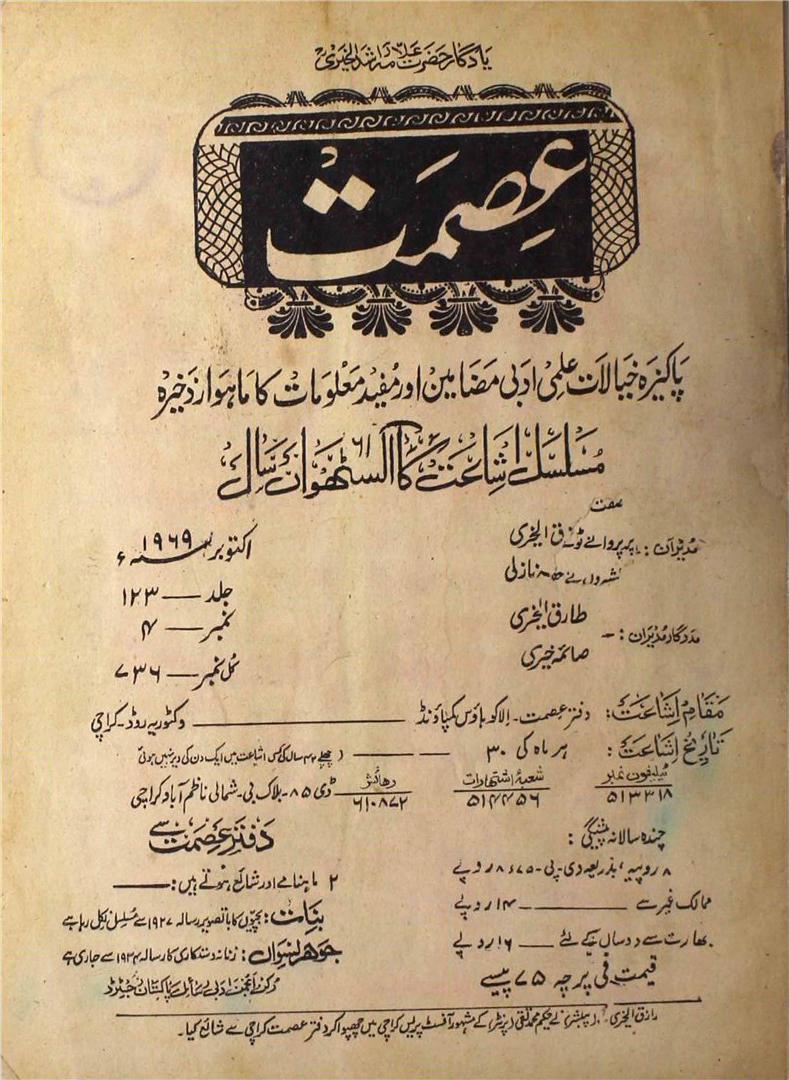 یادگار حضرت علامہ راشد الخیری
عصمت
پاکیزہ خیالات علمی ادبی مضامین اور مفید معلومات کا ماہوار ذخیرہ
مسلسل اشاعت کا ۶۱ اکسٹھواں سال
اکتوبر ۱۹۶۹ء
جلد — ۱۲۳
نمبر — ۴
کل نمبر — ۷۳۶
مدیران :
الخیری
نازلی
مددگار مدیران :-
طارق الخیری
صائمہ خیری
مقام اشاعت : دفتر عصمت۔ اِلاکو ہاؤس کمپاؤنڈ — وکٹوریہ روڈ۔ کراچی
تاریخ اشاعت : ہر ماہ کی ۳۰ — (پچھلے ۴۲ سال کی کسی اشاعت میں ایک دن کی دیر نہیں ہوئی
ٹیلیفون نمبر ۵۱۳۳۱۸
شعبۂ اشتہارات ۵۱۴۴۵۶
رہائش ۶۱۰۸۷۲
ڈی ۸۵ - بلاک بی - شمالی ناظم آباد کراچی
چندہ سالانہ پیشگی :
۸ روپیہ، بذریعہ وی - پی - ۸۶۷۵ روپے
ممالک غیر سے — ۱۴ روپے
بھارت سے دو سال کے لئے — ۱۶ روپے
قیمت فی پرچہ ۷۵ پیسے
دفتر عصمت سے
۲ ماہنامے اور شائع ہوتے ہیں :—
بنات : بچیوں کا باتصویر رسالہ ۱۹۲۷ سے مسلسل نکل رہا ہے
جوہر نسواں : زنانہ دستکاری کا رسالہ ۱۹۳۴ سے جاری ہے
رازق الخیری - (پبلشر) نے حکیم محمد تقی (پرنٹر) کے مشہور آفسٹ پریس کراچی میں چھپوا کر دفتر عصمت کراچی سے شائع کیا۔